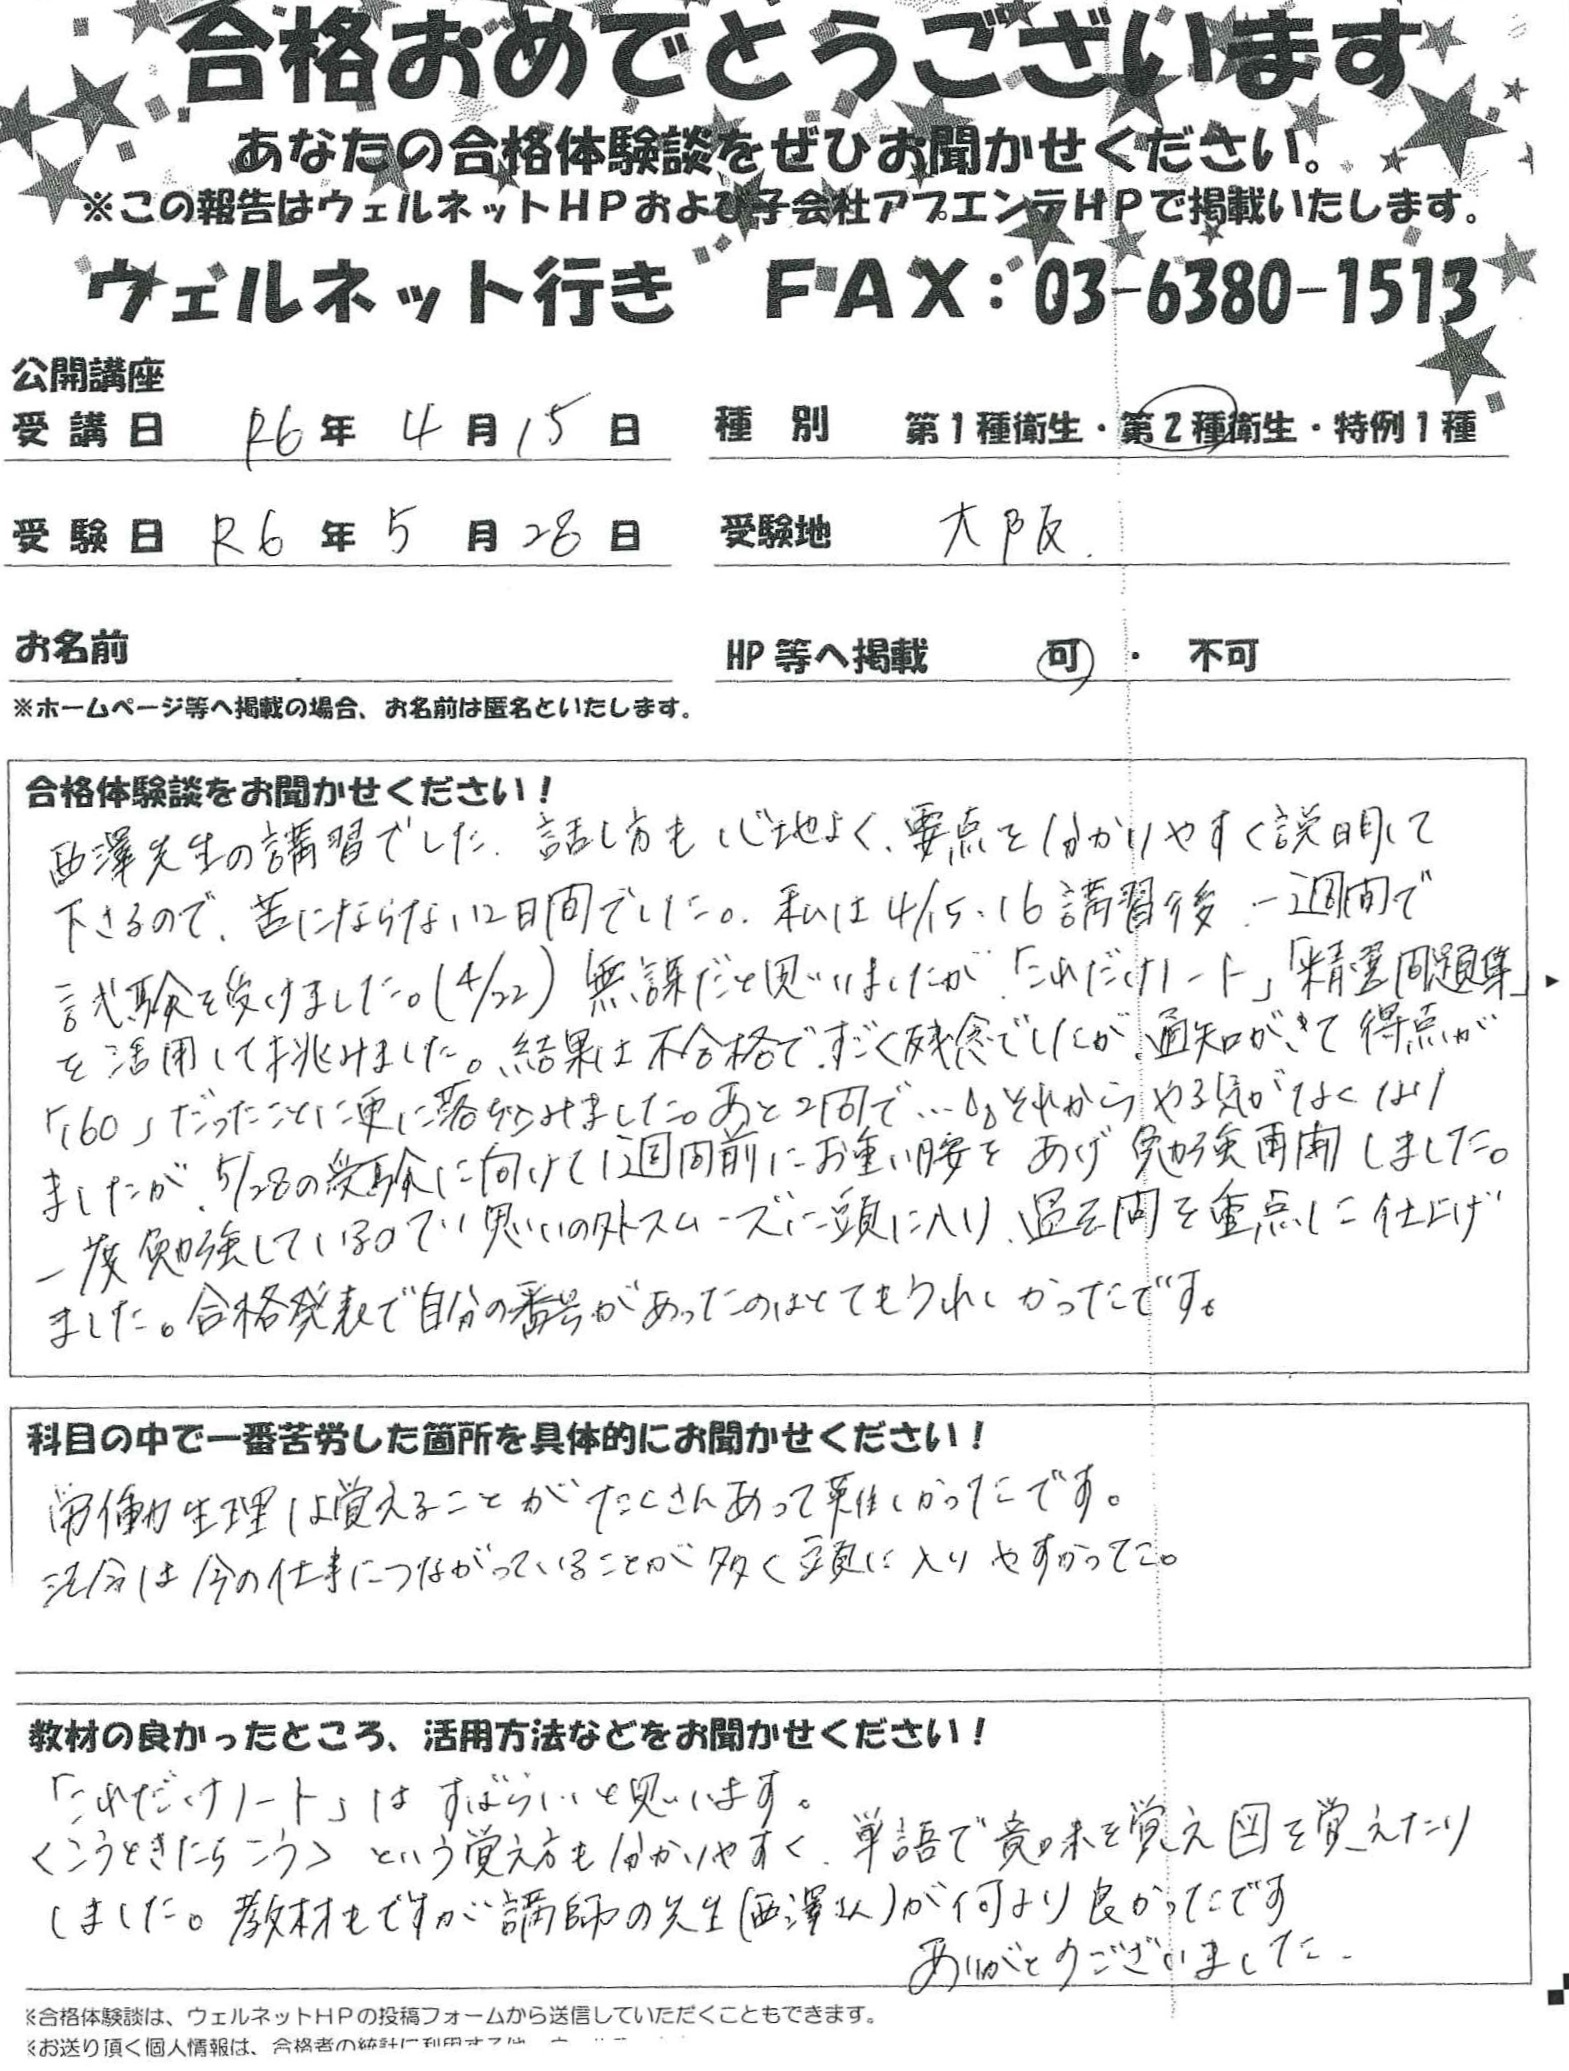 合格おめでとうございます
あなたの合格体験談をぜひお聞かせください。
※この報告はウェルネットHPおよび子会社アプエンテHPで掲載いたします。
ウェルネット行き FAX：03-6380-1513
公開講座
受講日 R6年 4月15日 種別 第1種衛生・第2種衛生・特例1種
受験日 R6年 5月28日 受験地 大阪.
お名前 HP等へ掲載 可・不可
※ホームページ等へ掲載の場合、お名前は匿名といたします。
合格体験談をお聞かせください！
西澤先生の講習でした、話し方も心地よく、要点を分かりやすく説明して
下さるので、苦にならない2日間でした。私は4/15、16講習後、一週間で
試験を受けました。(4/22)無謀だと思いましたが、「これだけノート」「精選問題集」
を活用して挑みました。結果は不合格で、すごく残念でしたが、通知がきて得点が
「160」だったことに更に落ち込みました。あと2問で…。それからやる気がなくなり
ましたが、5/28の受験に向けて1週間前にお重い腰をあげ勉強再開しました。
一度勉強しているので思いの外スムーズに頭に入り、過去問を重点に仕上げ
ました。合格発表で自分の番号があったのはとてもうれしかったです。
科目の中で一番苦労した箇所を具体的にお聞かせください！
労働生理は覚えることがたくさんあって難しかったです。
法令は今の仕事につながっていることが多く頭に入りやすかった。
教材の良かったところ、活用方法などをお聞かせください！
「これだけノート」はすばらしいと思います。
＜こうときたらこう＞という覚え方も分かりやすく、単語で意味を覚え図を覚えたり
しました。教材もですが講師の先生(西澤さん)が何より良かったです
ありがとうございました.
※合格体験談は、ウェルネットHPの投稿フォームから送信していただくこともできます。
※お送り頂く個人情報は、合格者の統計に利用する他、